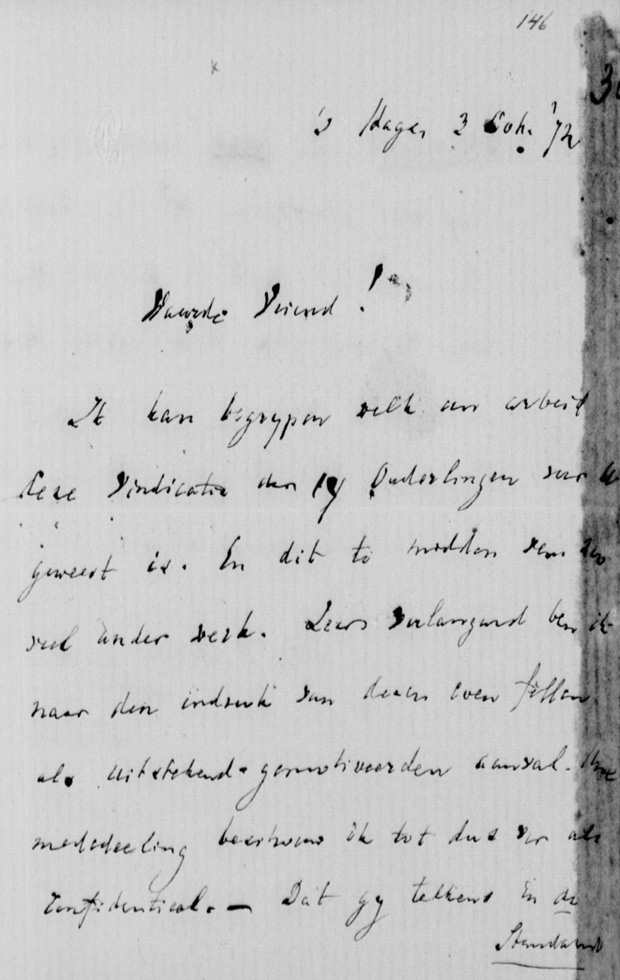 146
's Hage, 3 Oct. '72
Waarde Vriend!
Ik kan begrypen welk een arbeid
deze Vindicatie der 17 Ouderlingen voor U
geweest is. En dit te midden van zoo
veel ander werk. Zeer verlangend ben ik
naar den indruk van dezen even fellen
als uitstekend-gemotiveerden aanval. Uwe
mededeeling beschouw ik tot dus ver als
confidentieel. — Dat gy telkens in de
Standaard